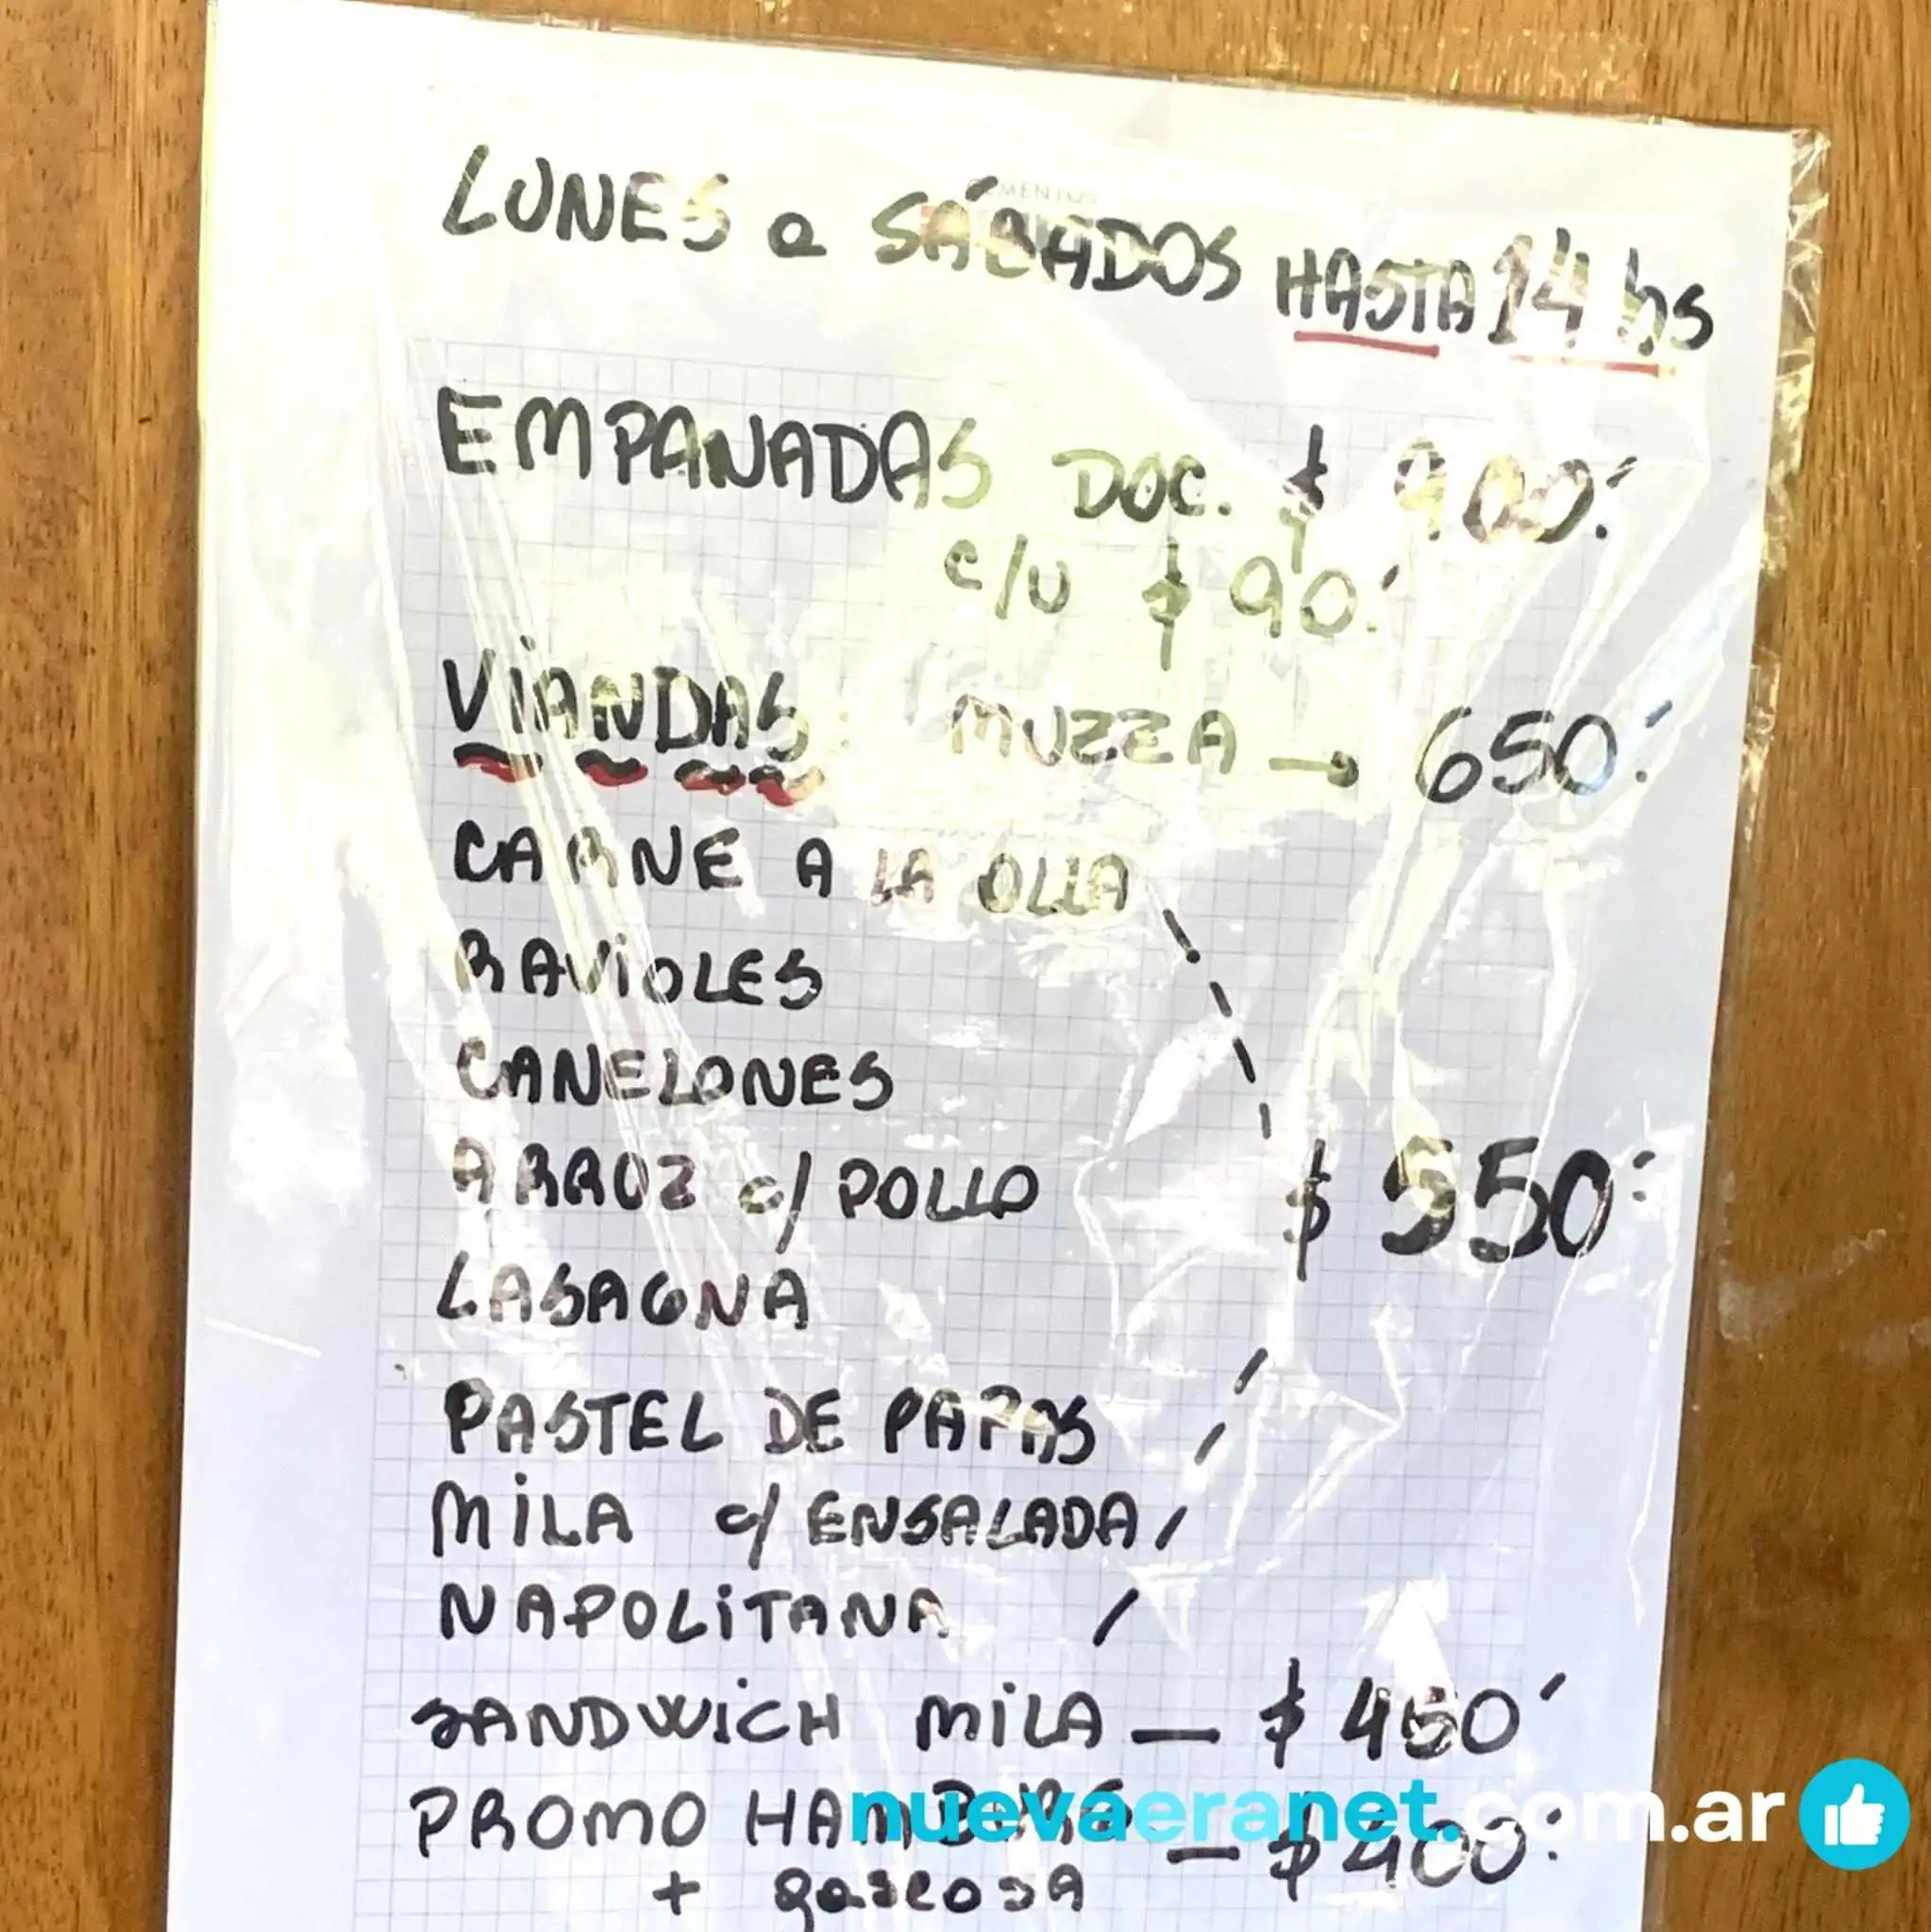 LUNES a SÁBADOS HASTA 14 hs
EMPANADAS DOC. $ 900.-
c/u $ 90.-
VIANDAS: MUZZA → 650.-
CARNE A LA OLLA
RAVIOLES
CANELONES
ARROZ c/ POLLO $ 550.-
LASAGNA
PASTEL DE PAPAS
MILA c/ ENSALADA
NAPOLITANA
SANDWICH MILA — $ 450
PROMO — $ 400.-
+ gaseosa
nuevaeranet.com.ar